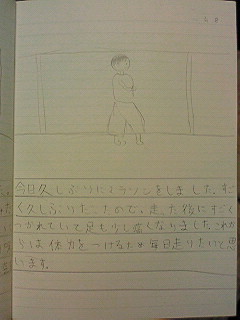 今日久しぶりにマラソンをしました。すご
く久しぶりだったので。走った後にすごく
つかれていて足も少し痛くなりました。これか
らは体力をつけるため毎日走りたいと思
います。